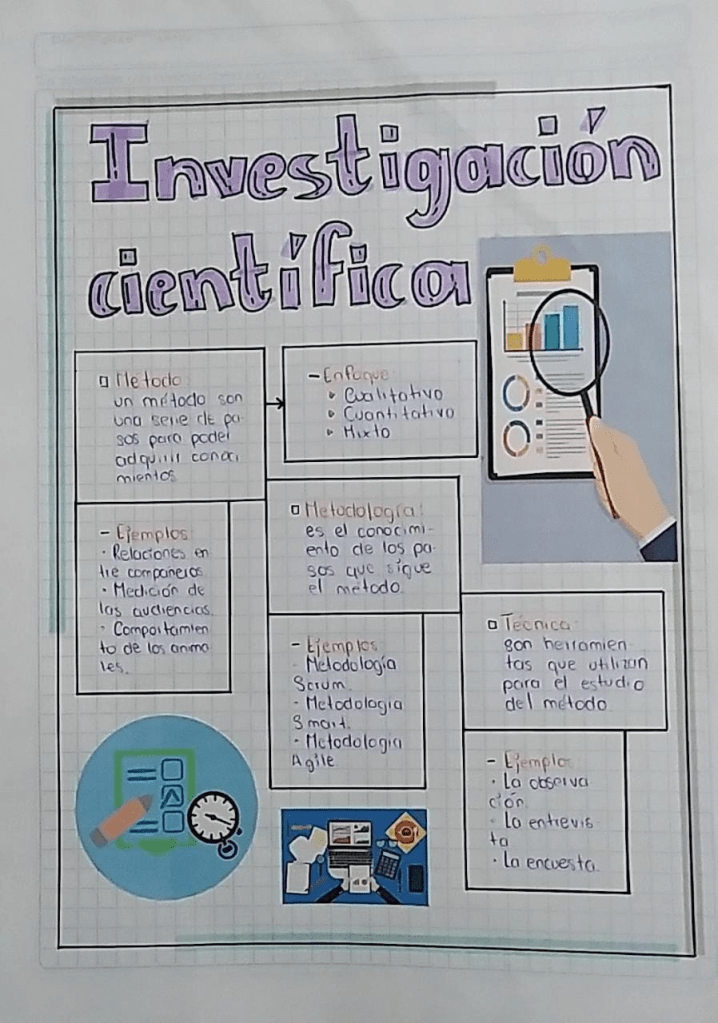 Investigación
científica
Método:
un método son
una serie de pa-
sos para poder
adquirir conoci
mientos
- Enfoque:
Cualitativo
Cuantitativo
Mixto
- Ejemplos:
· Relaciones en
tre compañeros.
· Medición de
las audiencias.
· Comportamien
to de los anima
les.
Metodología:
es el conocimi-
ento de los pa-
sos que sigue
el método.
- Ejemplos:
- Metodología
Scrum.
- Metodología
Smart.
- Metodología
Agile
Técnica:
son herramien-
tas que utilizan
para el estudio
del método
- Ejemplo:
· La observa
ción.
· La entrevis
ta
· La encuesta.